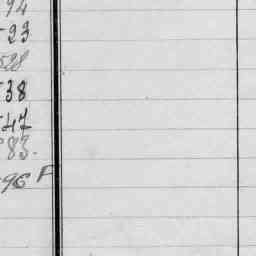 94
23
528
38
47
83.
96 F